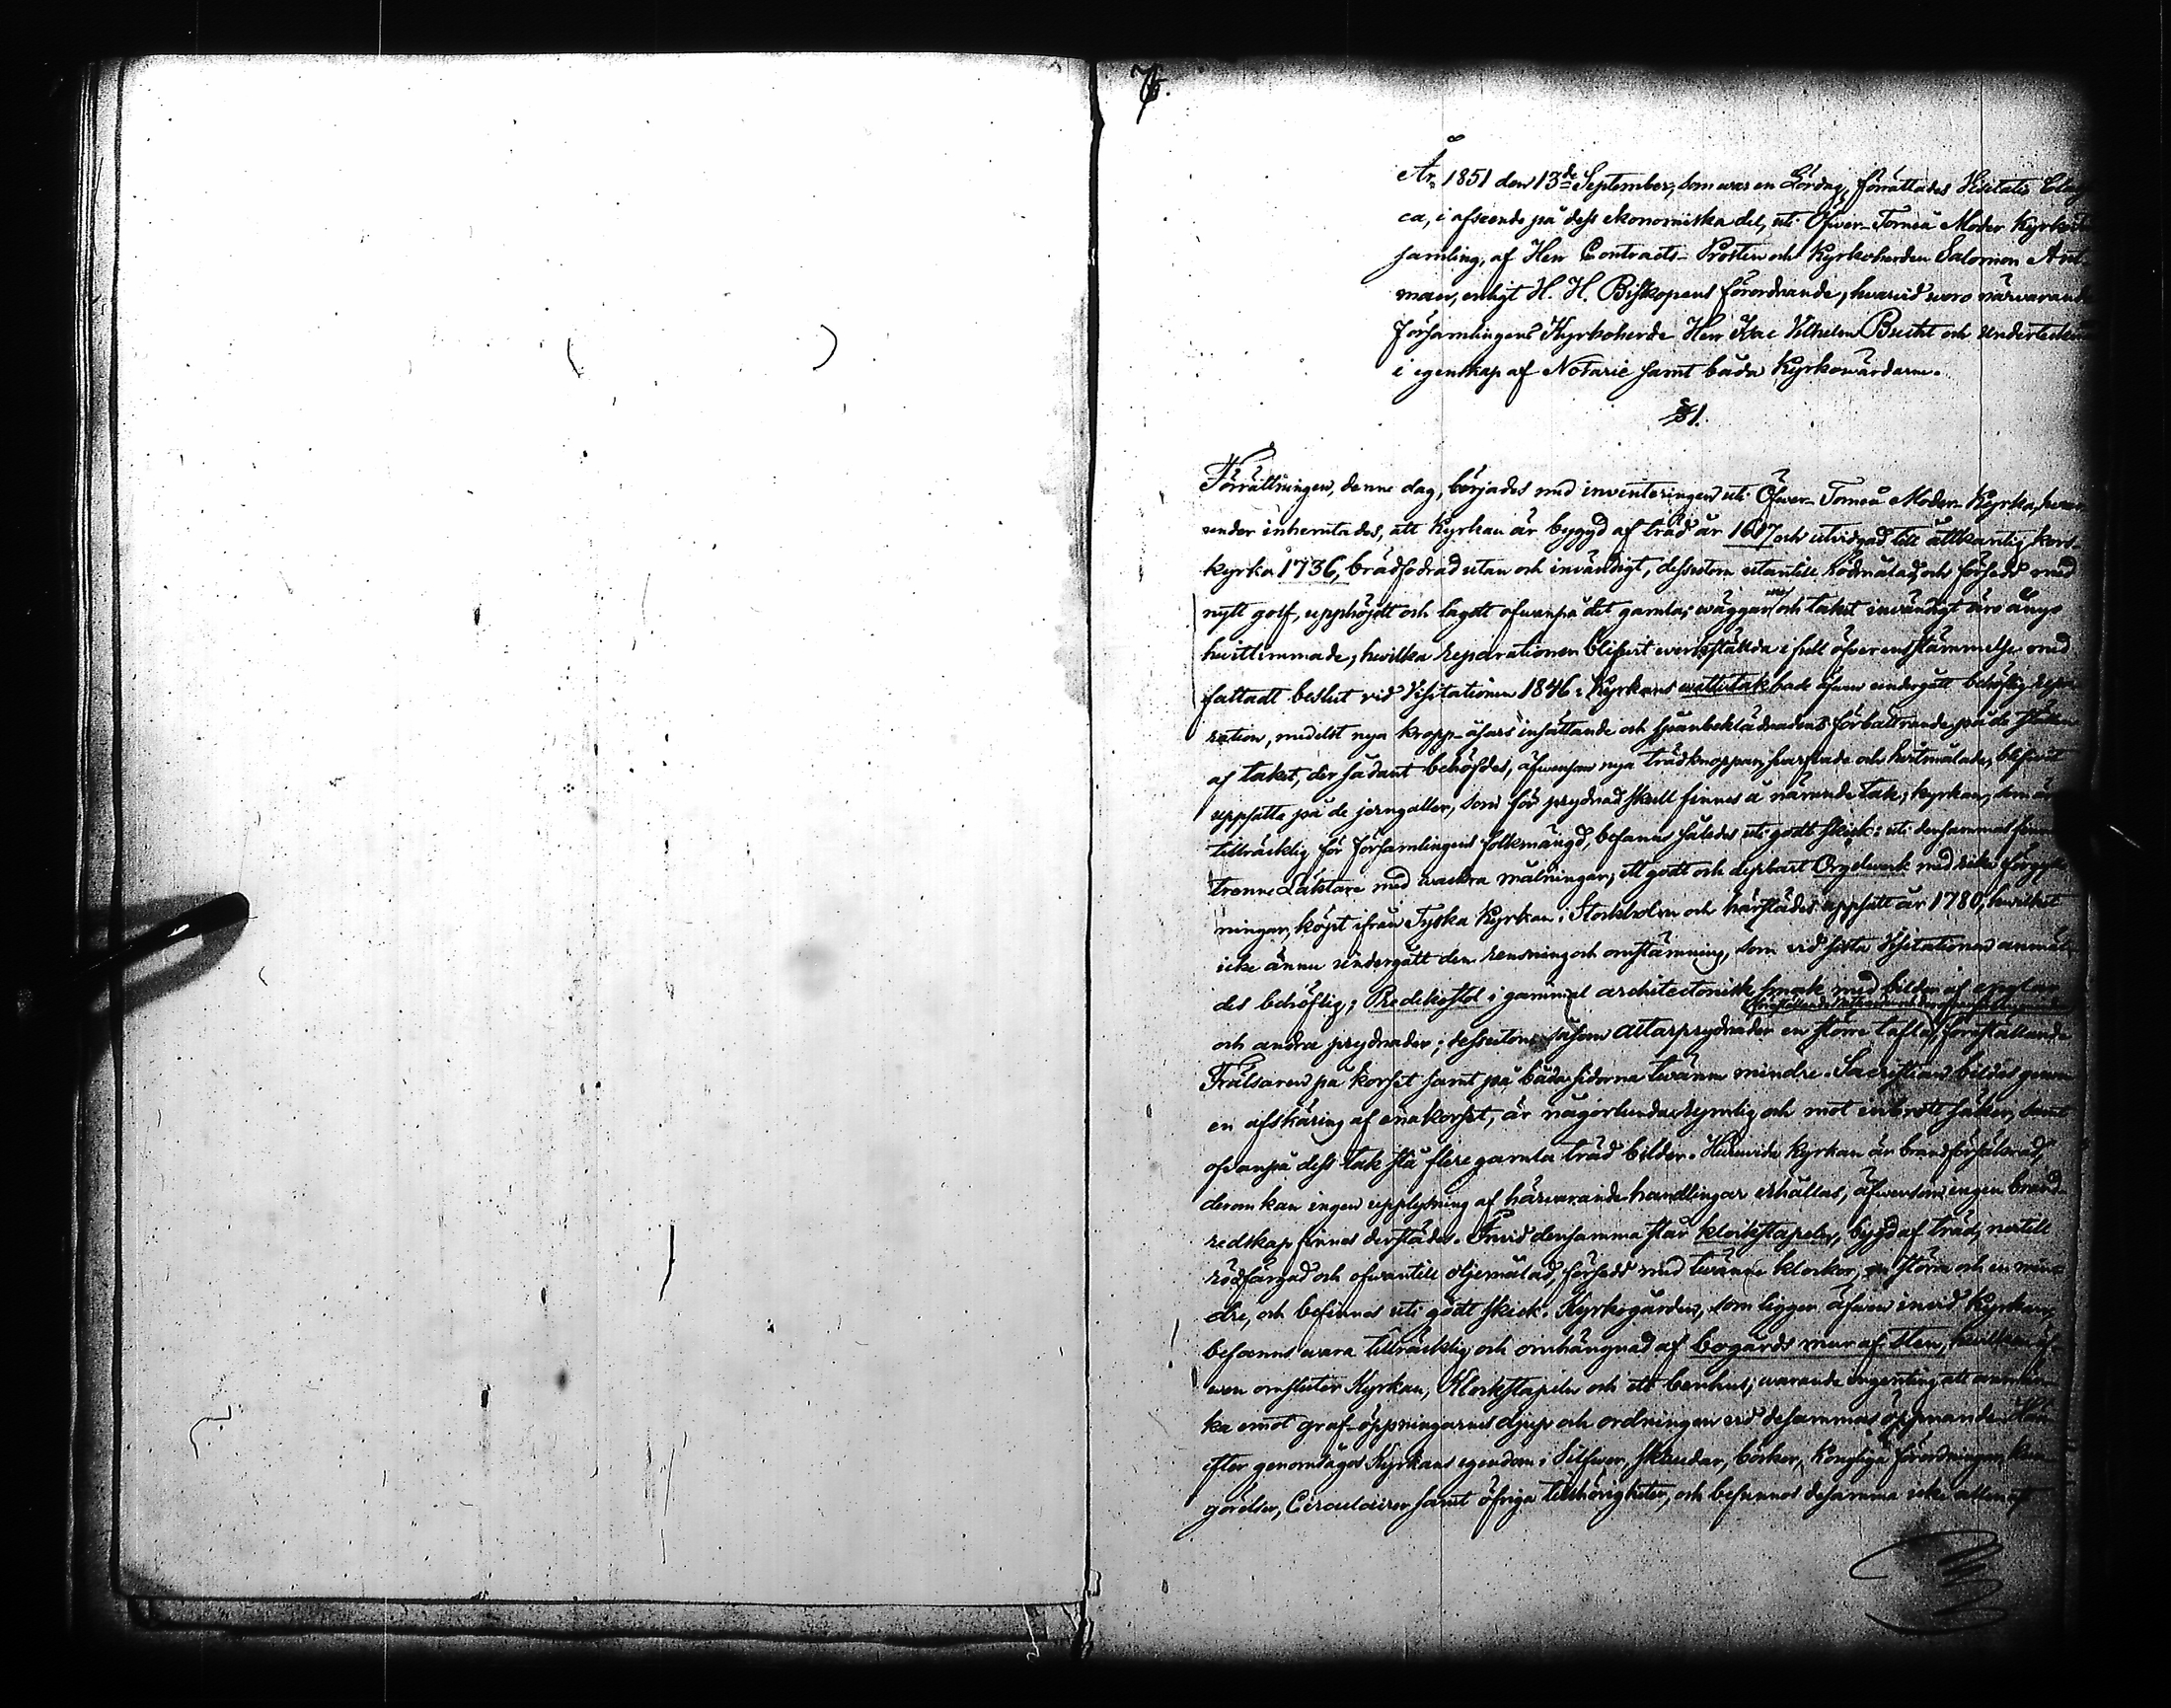 År 1851 den 13de September, som war en Lördag, förrättades Visitatio
ca, i afseende på dess ekonomiska del, uti Öfwer-Torneå Moder Kyrkoför
samling, af Herr Contracts-Prosten och Kyrkoherden Salomon
man, enligt H. H. Biskopens förordnande, hwarvid woro närwarande
Församlingens Kyrkoherde Herr Isac Vilhelm Brucht och Undertecknad
i egenskap af Notarie samt båda Kyrkowärdarne.
§1.
Förrättningen, denne dag, börjades med inventeringen uti Öfwer-Torneå Moder-Kyrka, hwar
under inhemtades, att Kyrkan är byggd af träd år 1617 och utvidgad till åttkantig kors-
kyrka 1736, brädfodrad utan och invändigt, dessutom utantill rödmålad, och försedd med
nytt golf, upphöjdt och lagdt ofwanpå det gamla; wäggarne och taket invändigt äro ånyo
hwitlimmade, hwilka reparationer blifwit werkställda i full öfverensstämmelse med
fattadt beslut vid Visitationen 1846: Kyrkans wattutak hade äfwen undergått behöflig repa-
ration, medelst nya kropp-åsars insättande och spånbeklädnadens förbättrande på de ställen
af taket, der sådant behöfdes, äfwensom nya trädknoppar, swarfwade och hwitmålade, blifwit
uppsatta på de jerngaller, som för prydnad skull finnas å nämnde tak; kyrkan, som är
tillräcklig för Församlingens folkmängd, befanns således uti godt skick: uti densamma finnas
trenne Läktare med wackra målningar, ett godt och dyrbart Orgelwerk med rika förgyll-
ningar, köpt ifrån Tyska Kyrkan i Stockholm och härstädes uppsatt år 1780, hwilket
icke ännu undergått den rensning och omstämning, som vid sista Visitationen anmäl-
des behöflig; Predikostol i gammal architectonisk smak med bilder af englar
och andra prydnader; dessutom såsom altarprydnader en större tafla, föreställande
Frälsaren på korset samt på båda sidorna twänne mindre. Sacristian bildas genom
en afskäring af ena korset, är någorlunda rymlig och mot inbrott säker, samt
ofvanpå dess tak stå flere gamla träd bilder. Huruvida Kyrkan är brandförsäkrad,
derom kan ingen upplysning af härwarande handlingar erhållas, äfwensom ingen brand-
redskap finnes derstädes. Invid densamma står klockstapeln, bygd af träd, nertill
rödfärgad och ofwantill oljemålad, försedd med twänne klockor, en större och en min-
dre, och befinnes uti godt skick. Kyrkogården, som ligger äfwen invid Kyrkan,
befanns wara tillräcklig och omhängnad af bogårds mur af sten, hwilken äf-
wen omsluter Kyrkan, Klockstapeln och ett benhus; warande ingenting att anmär-
ka emot graf-öppningarnes djup och ordningen vid desammas öppnande. Här-
efter genomsågos Kyrkans egendom i Silfwer, skrudar, böcker, Kongliga förordningar, kun-
görelser, Circulairer samt öfriga tillhörigheter, och befunnos desamma icke allenast